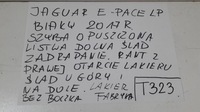 JAGUAR E-PACE LP
BIAŁY 2017R
SZYBA OPUSZCZONA
LISTWA DOLNA ŚLAD
ZADRAPANIE, RANT Z
PRAWEJ OTARCIE LAKIERU
ŚLAD U GÓRY I
NA DOLE. LAKIER
BEZ BOCZKA FABRYKA
T323